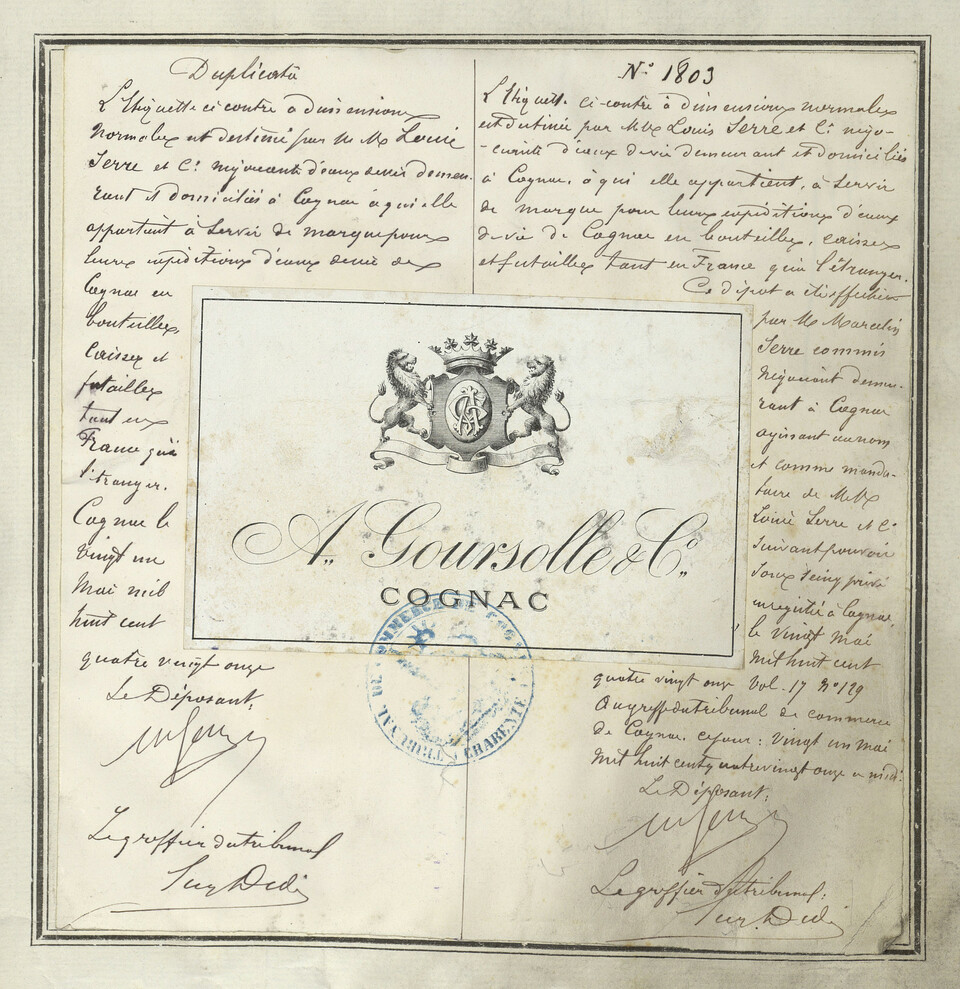 Duplicata
L'Etiquette ci contre à dimensions
normales est destiné par M M Louis
Serre et Cie négociants d'eaux de vie demeu-
rant et domiciliés à Cognac à qui elle
appartient à servir de marque pour
leurs expéditions d'eaux de vie de
Cognac en
bouteilles,
caisses et
futailles
tant en
France qu'à
l'étranger.
Cognac le
vingt un
Mai mil
huit cent
quatre vingt onze
Le Déposant,
Le greffier du tribunal
No 1803
L'Etiquette ci-contre à dimensions normales
est destinée par MM Louis Serre et Cie négo-
-ciants d'eaux de vie demeurant et domiciliés
à Cognac, à qui elle appartient, à servir
de marque pour leurs expéditions d'eaux
de vie de Cognac en bouteilles, caisses
et futailles tant en France qu'à l'étranger.
Ce dépôt a été effectué
par M Marcelin
Serre commis
négociant demeu-
rant à Cognac
agissant au nom
et comme manda-
taire de MM
Louis Serre et Cie
suivant pouvoir
sous seing privé
enregistré à Cognac,
le vingt mai
mil huit cent
quatre vingt onze Vol. 17 No 129
Au greffe du tribunal de commerce
de Cognac, ce jour: vingt un mai
mil huit cent quatre vingt onze a midi
Le Déposant,
Le greffier du tribunal:
A. Goursolle & Co.
COGNAC
TRIBUNAL DE COMMERCE DE COGNAC
CHARENTE